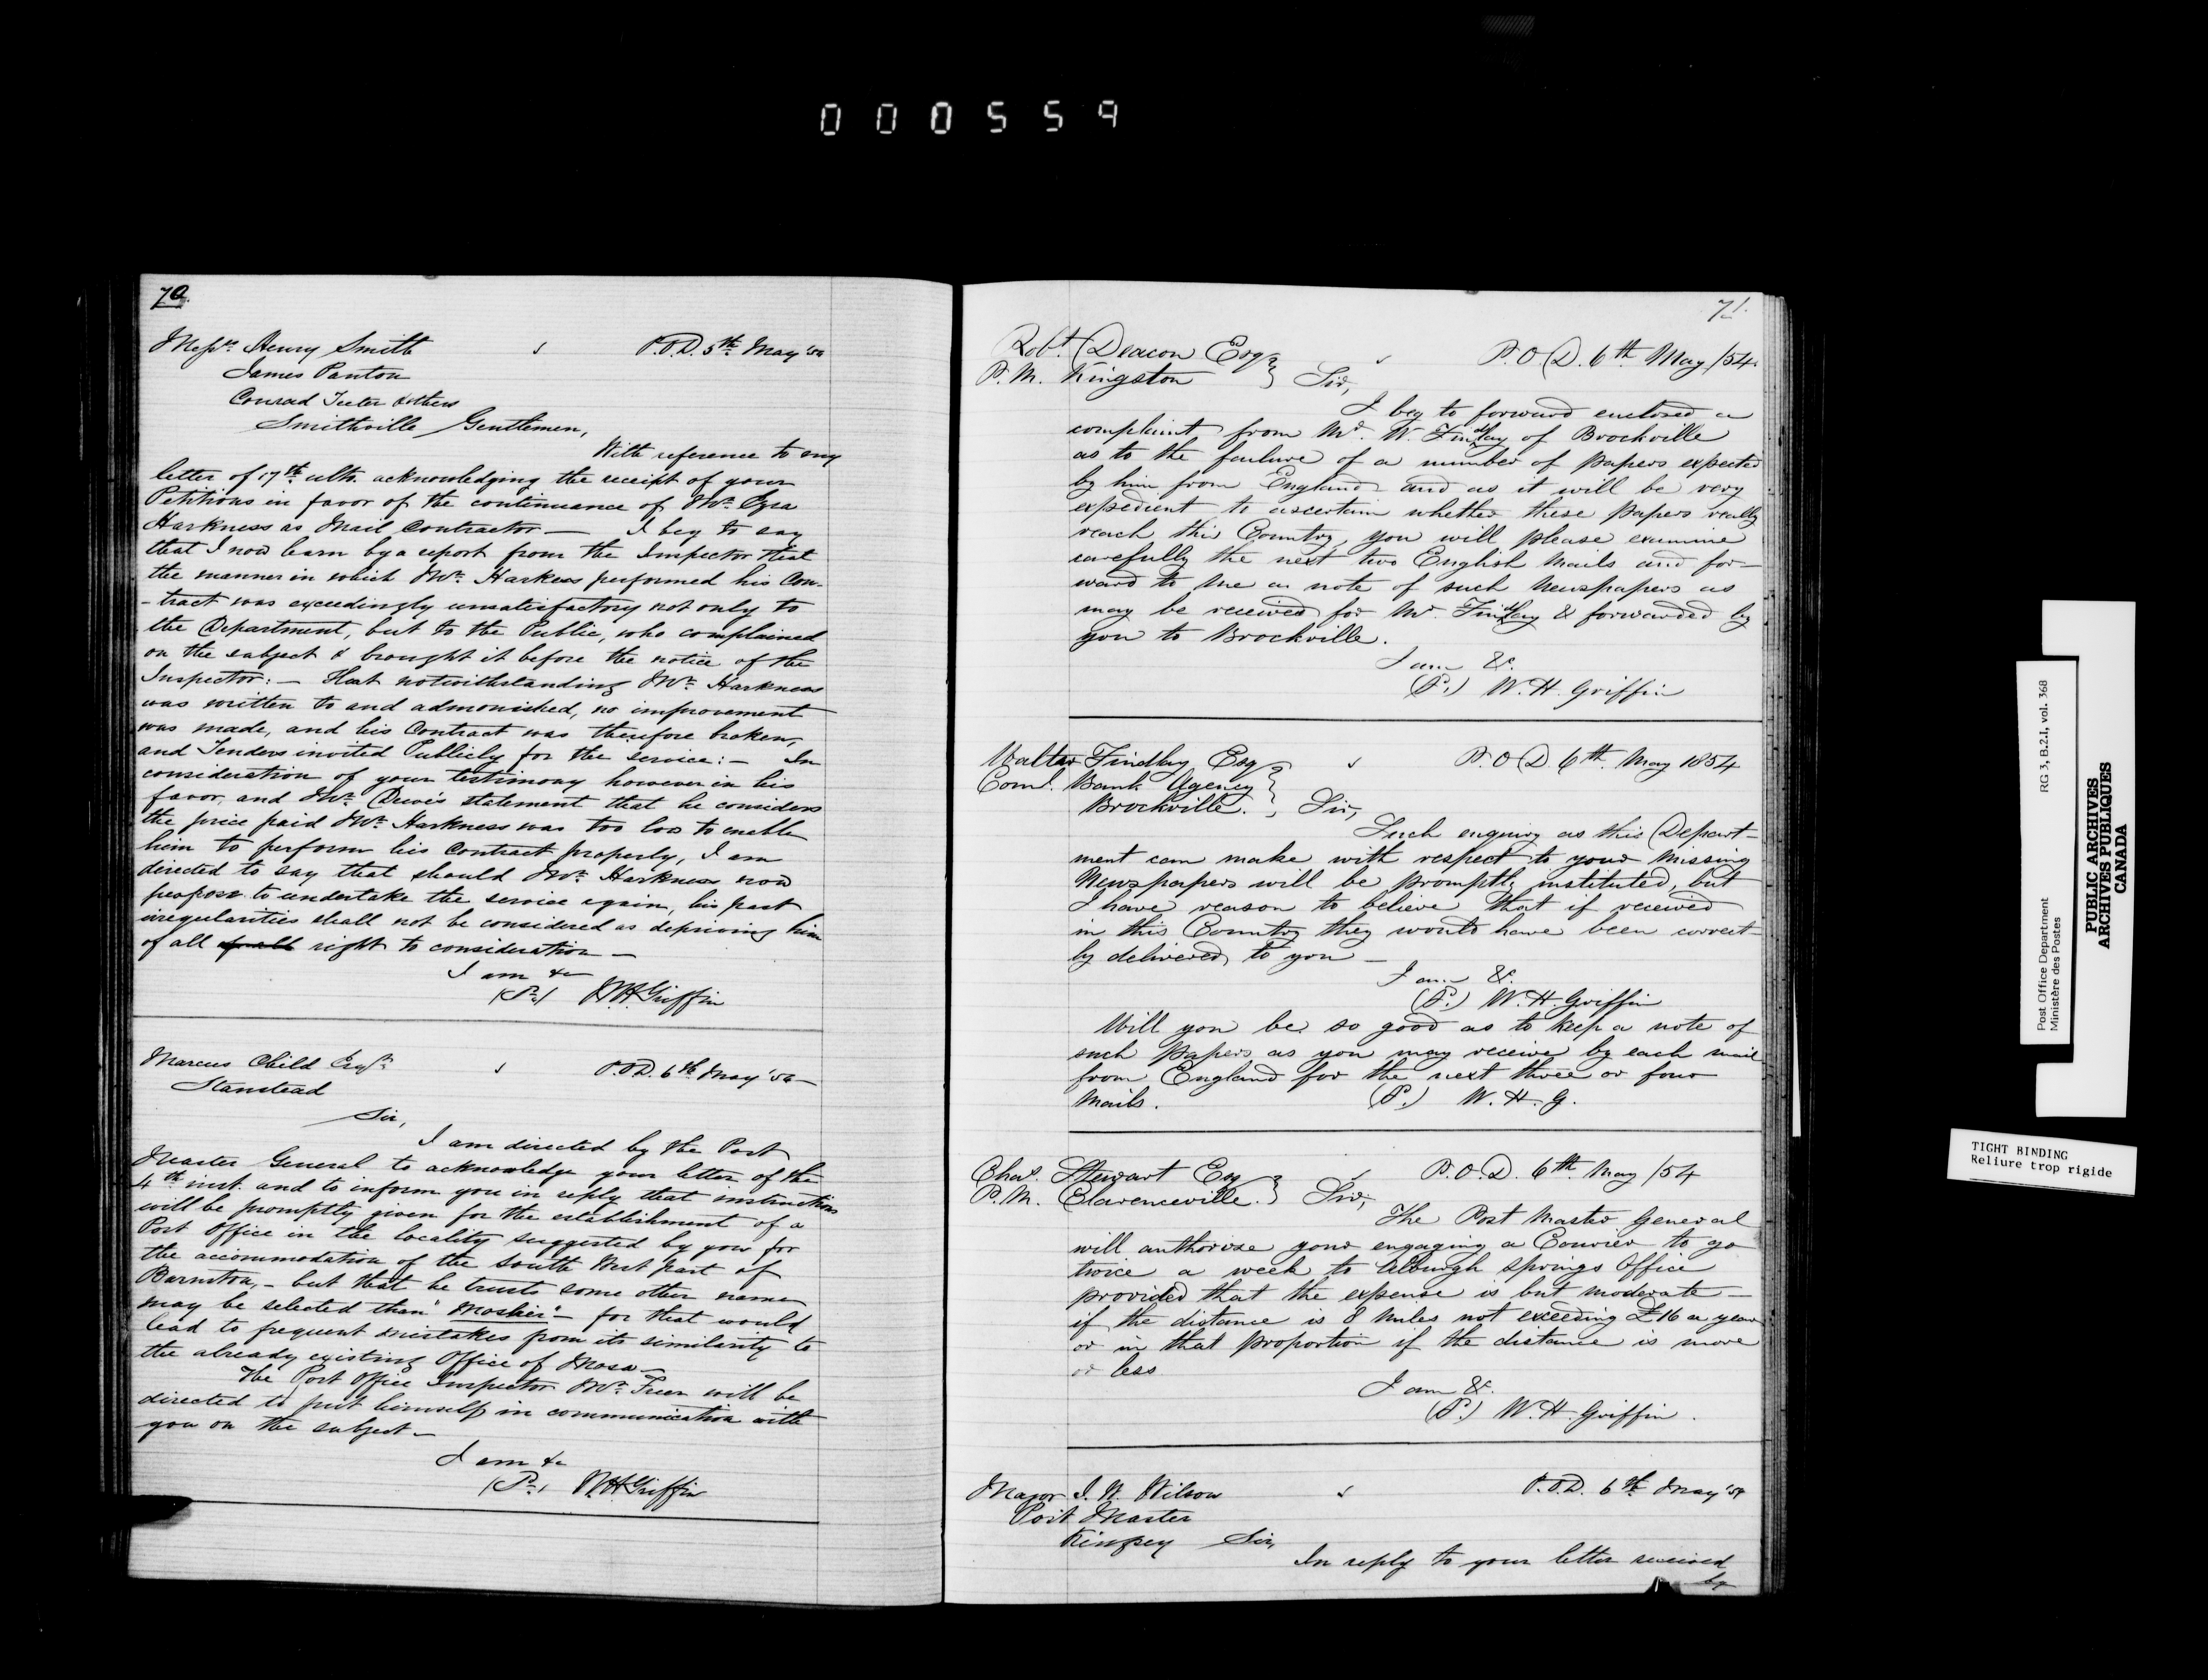 000559
70.
Messrs. Henry Smith P.O.D. 5th May '54
James Panton
Conrad Teeter & others
Smithville Gentlemen,
With reference to my
letter of 17th ulto. acknowledging the receipt of your
Petitions in favor of the continuance of Mr. Ezra
Harkness as Mail Contractor — I beg to say
that I now learn by a report from the Inspector that
the manner in which Mr. Harkness performed his Con-
-tract was exceedingly unsatisfactory not only to
the Department, but to the Public, who complained
on the subject & brought it before the notice of the
Inspector: — that notwithstanding Mr. Harkness
was written to and admonished, no improvement
was made, and his Contract was therefore broken,
and Tenders invited Publicly for the service: — In
consideration of your testimony however in his
favor, and Mr. Dewe's statement that he considers
the price paid Mr. Harkness was too low to enable
him to perform his Contract properly, I am
directed to say that should Mr. Harkness now
propose to undertake the service again, his past
irregularities shall not be considered as depriving him
of all right to consideration —
I am &c
(P.) W.H. Griffin
Marcus Child Esqr. P.O.D. 6th May '54 —
Stanstead
Sir,
I am directed by the Post
Master General to acknowledge your letter of the
4th inst. and to inform you in reply that instructions
will be promptly given for the establishment of a
Post Office in the locality suggested by you for
the accommodation of the South West part of
Barnston, — but that he trusts some other name
may be selected than "Mosher" — for that would
lead to frequent mistakes from its similarity to
the already existing Office of Mosa —
The Post Office Inspector Mr. Freer will be
directed to put himself in communication with
you on the subject —
I am &c
(P.) W.H. Griffin
71.
Robt. Deacon Esq P.O.D. 6th May /54.
P.M. Kingston } Sir,
I beg to forward enclosed a
complaint from Mr. W. Findlay of Brockville
as to the failure of a number of papers expected
by him from England and as it will be very
expedient to ascertain whether these papers really
reach this Country, you will please examine
carefully the next two English Mails and for-
ward to me a note of such Newspapers as
may be received for Mr. Findlay & forwarded by
you to Brockville.
I am &c.
(P.) W.H. Griffin
Walter Findlay Esq P.O.D. 6th May 1854
Coml. Bank Agency
Brockville. } Sir,
Such enquiry as this Depart-
ment can make with respect to your missing
Newspapers will be promptly instituted, but
I have reason to believe that if received
in this Country they would have been correct-
ly delivered to you —
I am &c.
(P.) W.H. Griffin
Will you be so good as to keep a note of
such Papers as you may receive by each mail
from England for the next three or four
Mails. (P.) W.H.G.
Chas. Stewart Esq P.O.D. 6th May /54
P.M. Clarenceville. } Sir,
The Post Master General
will authorize your engaging a Courier to go
twice a week to Alburgh Springs Office
provided that the expense is but moderate —
if the distance is 8 Miles not exceeding £16 a year
or in that proportion if the distance is more
or less
I am &c.
(P.) W.H. Griffin.
Major J. W. Wilson P.O.D. 6th May '54
Post Master
Kingsey Sir,
In reply to your letter received
by
Post Office Department RG 3, B.2.I, vol. 368
Ministère des Postes
PUBLIC ARCHIVES
ARCHIVES PUBLIQUES
CANADA
TIGHT BINDING
Reliure trop rigide